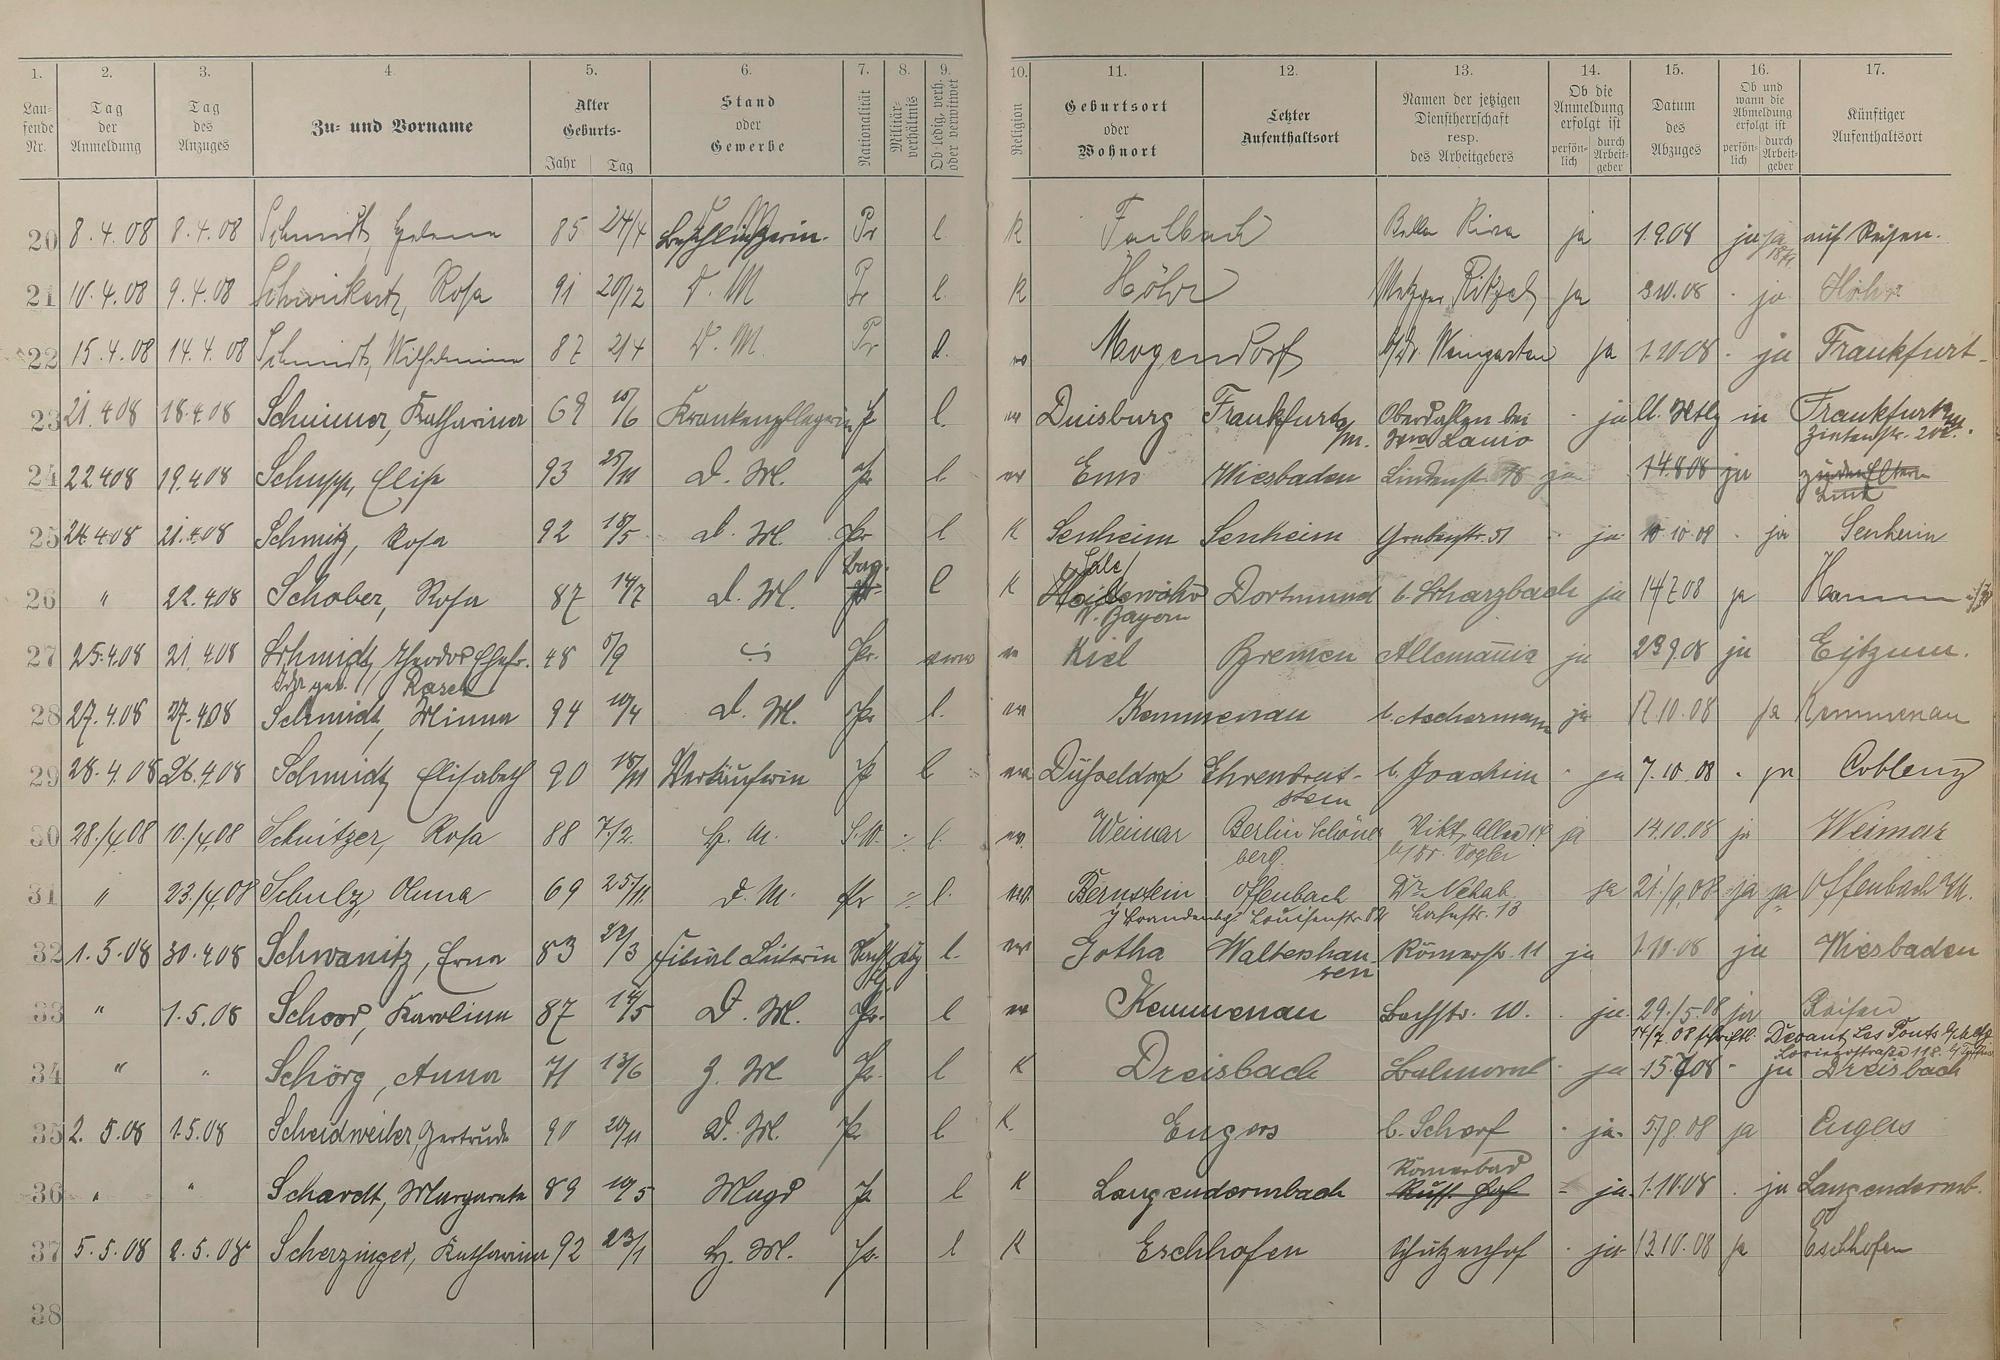 1. 2. 3. 4 5. 6. 7. 8. 9. 10. 11. 12. 13. 14. 15. 16. 17.
Lau-
fende
Nr.
Tag
der
Anmeldung
Tag
des
Anzuges
Zu- und Vorname
Alter
Geburts-
Jahr Tag
Stand
oder
Gewerbe
Nationalität
Militär-
verhältnis
Ob ledig, verh.
oder verwitwet
Religion
Geburtsort
oder
Wohnort
Letzter
Aufenthaltsort
Namen der jetzigen
Dienstherrschaft
resp.
des Arbeitgebers
Ob die
Anmeldung
erfolgt ist
persön-
lich
durch
Arbeit-
geber
Datum
des
Abzuges
Ob und
wann die
Abmeldung
erfolgt ist
persön-
lich
durch
Arbeit-
geber
Künftiger
Aufenthaltsort
20 8.4.08 8.4.08 Schmidt, Helena 85 24/4 Pr l K Failbach Bella Riva ja 1.9.08 ja auf Reisen.
21 10.4.08 9.4.08 Schwickert, Rosa 91 20/12 D. M Pr l. K Höhr Metzger Ritzel ja 3.10.08 - ja Höhr
22 15.4.08 14.4.08 Schmidt, Wilhelmine 87 21/4 D. M. Pr l. ev Mogendorf b/Dr. Weingarten ja 1.10.08 - ja Frankfurt
23 21.4.08 18.4.08 Katharina 69 10/6 Krankenpflegerin Pr l. ev Duisburg Frankfurt a/m. Oberstallen bei - ja in Frankfurt a/m.
24 22.4.08 19.4.08 Schupp, Elise 93 25/11 D. M. Pr l. ev Ems Wiesbaden Lindenstr. 18 ja 14.8.08 ja zu den Eltern
25 24.4.08 21.4.08 Schmitz, Rosa 92 18/5 D. M Pr l K Senheim Senheim Grabenstr. 51 - ja 10.10.08 - ja Senheim
26 " 22.4.08 Schober, Rosa 87 14/7 D. M. Bay. Pr. l K Dortmund b. Scharzbach ja 14/7 08 ja Hamm
N. Bayern
27 25.4.08 21.4.08 Schmidt, Theodor Ehefr. 48 5/9 Pr. ev Kiel Bremen Allemannia ja 23.9.08 ja Eitzum.
Ida geb. Rasch
28 27.4.08 27.4.08 Schmidt, Minna 94 10/4 D. M. Pr l. ev Kemmenau b. Aschermann ja 12.10.08 ja Kemmenau
29 28.4.08 26.4.08 Schmidt, Elisabeth 90 18/11 Verkäuferin Pr l ev Düsseldorf Ehrenbreit-
stein b. Joachim - ja 7.10.08 - ja Coblenz
30 28./4.08 10./4.08 Schnitzer, Rosa 88 7./2. H. M. S.W. l. ev. Weimar Berlin Schöne
berg. Vikt. Allee 14 ja 14.10.08 ja Weimar
b/Dr. Vogler
31 " 23./4.08 Schulz, Anna 69 25./11. D. M. Pr l. ev. Bernstein Offenbach ja 21./9.08 ja ja Offenbach a/M.
Louisenstr. 82 Bahnstr. 13
32 1.5.08 30.4.08 Schwanitz, Erna 83 22/3 Filial Leiterin l. ev Gotha Waltershau
sen Römerstr. 11 ja 1.10.08 ja Wiesbaden
33 " 1.5.08 Schoor, Karoline 87 14/5 D. M. Pr. l ev Kemmenau Bachstr. 10. - ja. 29./5.08 ja Reisen
14/7 08 schriftl. Devant Les Ponts b/Metz
34 " " Schörg, Anna 71 13/6 Z. M Pr. l K Dreisbach Balmoral - ja 15.7.08 - ja Dreisbach
35 2.5.08 1.5.08 Scheidweiler, Gertrude 90 20/11 D. M. Pr l K. Engers b. Scharf - ja. 5/8.08 ja Engers
36 " " Schardt, Margareta 89 10/5 Magd Pr l K Langendernbach Römerbad
Russ. Hof - ja. 1.10.08 - ja Langendernb.
37 5.5.08 2.5.08 Scherzinger, Katharina 92 23/1 H. M. Pr. l K Eschhofen Schützenhof - ja 13.10.08 ja Eschhofen
38